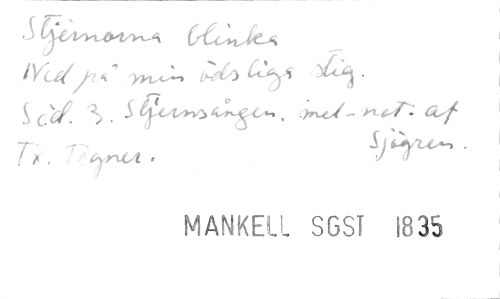 Stjernorna blinka
Ned på min ödsliga stig.
Sid. 3. Stjernsången. mel-not. af
Sjögren.
Tx. Tegner.
MANKELL SGST 1835